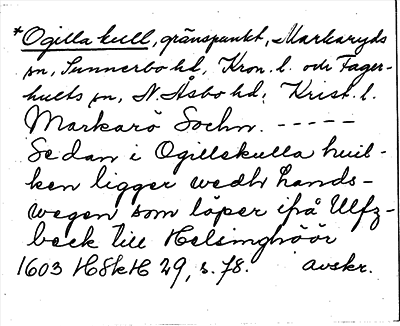 *Ogilla kull, gränspunkt, Markaryds
sn, Sunnerbo hd, Kron. l. och Fager-
hults sn, N. Åsbo hd, Krist. l.
Markarö Sochn. -----
Sedan i Ogillskulla huil-
ken ligger wedh Lands-
wegen som löper ifrå Ulfz-
beck till Helsinghöör
1603 H8kH 29, s. 78. avskr.